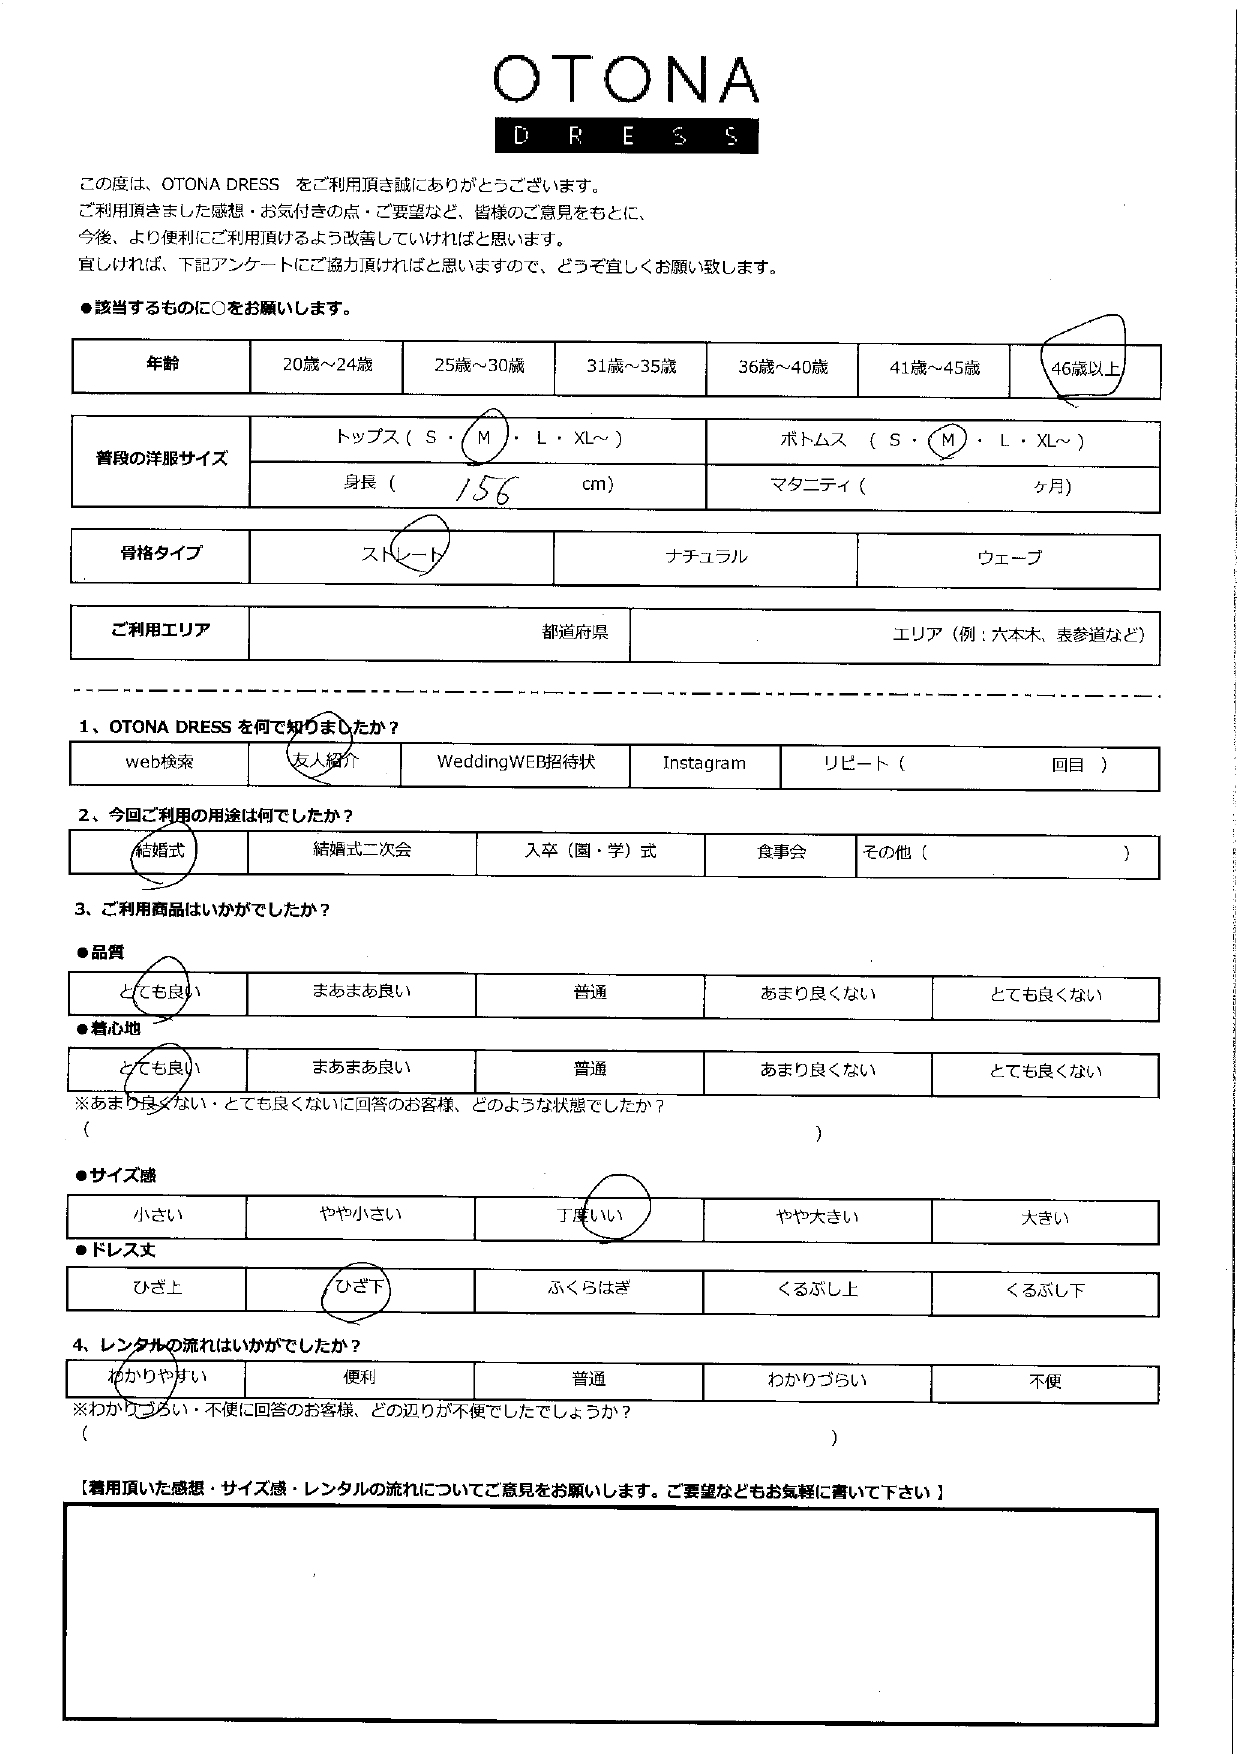 OTONA
DRESS
この度は、OTONA DRESS　をご利用頂き誠にありがとうございます。
ご利用頂きました感想・お気付きの点・ご要望など、皆様のご意見をもとに、
今後、より便利にご利用頂けるよう改善していければと思います。
宜しければ、下記アンケートにご協力頂ければと思いますので、どうぞ宜しくお願い致します。
●該当するものに○をお願いします。
年齢 20歳～24歳 25歳～30歳 31歳～35歳 36歳～40歳 41歳～45歳 46歳以上
普段の洋服サイズ トップス ( S ・ M ・ L ・ XL～ ) ボトムス ( S ・ M ・ L ・ XL～ )
身長 ( 156 cm) マタニティ ( ヶ月)
骨格タイプ ストレート ナチュラル ウェーブ
ご利用エリア 都道府県 エリア（例：六本木、表参道など）
1、OTONA DRESS を何で知りましたか？
web検索 友人紹介 WeddingWEB招待状 Instagram リピート（ 回目 ）
2、今回ご利用の用途は何でしたか？
結婚式 結婚式二次会 入卒（園・学）式 食事会 その他（ ）
3、ご利用商品はいかがでしたか？
●品質
とても良い まあまあ良い 普通 あまり良くない とても良くない
●着心地
とても良い まあまあ良い 普通 あまり良くない とても良くない
※あまり良くない・とても良くないに回答のお客様、どのような状態でしたか？
( )
●サイズ感
小さい やや小さい 丁度いい やや大きい 大きい
●ドレス丈
ひざ上 ひざ下 ふくらはぎ くるぶし上 くるぶし下
4、レンタルの流れはいかがでしたか？
わかりやすい 便利 普通 わかりづらい 不便
※わかりづらい・不便に回答のお客様、どの辺りが不便でしたでしょうか？
( )
【着用頂いた感想・サイズ感・レンタルの流れについてご意見をお願いします。ご要望などもお気軽に書いて下さい 】